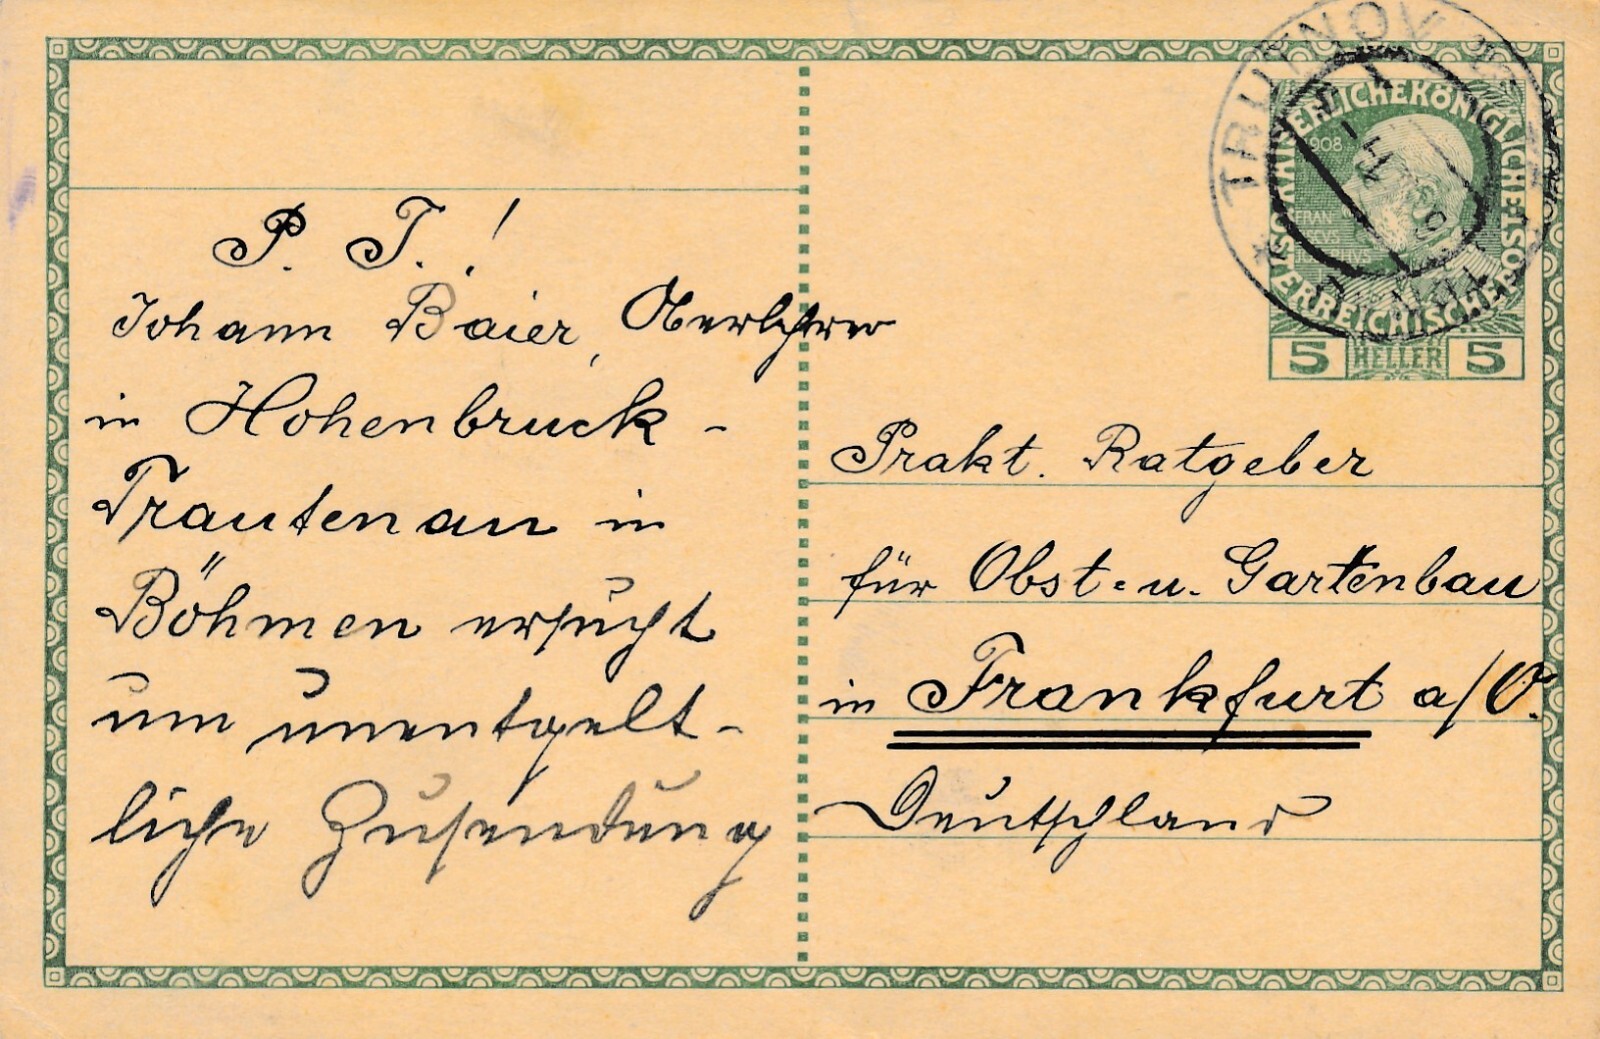 P. T.!
Johann Baier, Oberlehrer
in Hohenbruck -
Trautenau in
Böhmen ersucht
um unentgelt-
liche Zusendung
TRUTNOV
KAISERLICHE KÖNIGLICHE ÖSTERREICHISCHE POST
1908
FRAN
5 HELLER 5
Prakt. Ratgeber
für Obst- u. Gartenbau
in Frankfurt a/O.
Deutschland